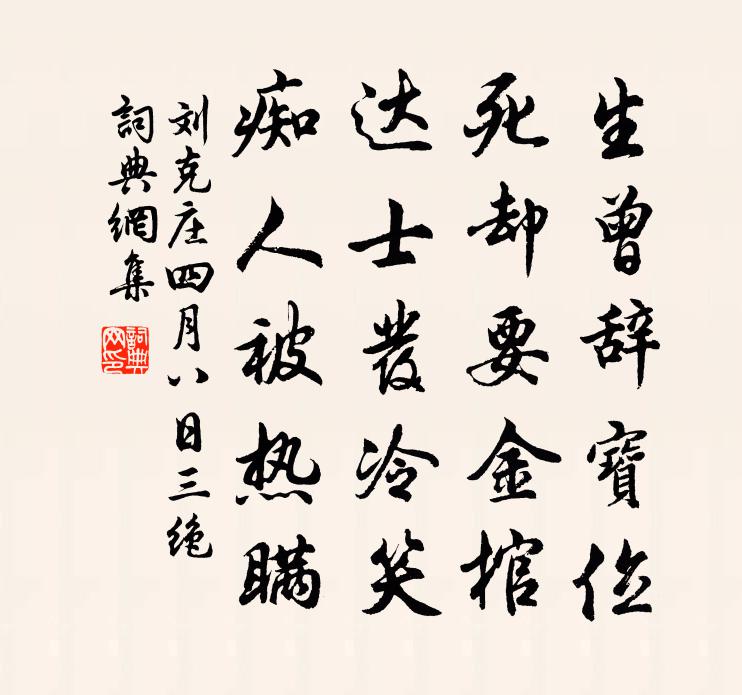 生曾辞寶位
死却要金棺
达士发冷笑
痴人被热瞒
刘克庄四月八日三绝
詞典網集
詞典网印